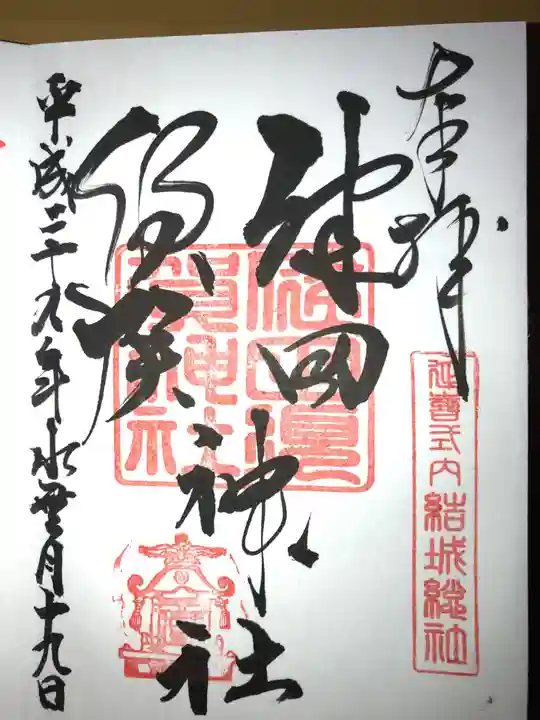 奉拝
延喜式内結城総社
健田
須賀神社
平成二十九年水無月十九日